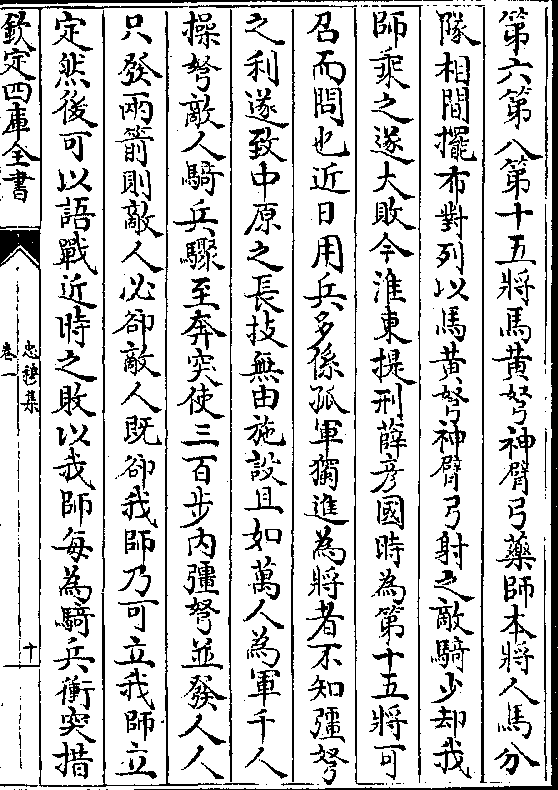 第六第八第十五將馬黄弩神臂弓藥師本將人馬分
隊相間擺布對列以馬黄弩神臂弓射之敵騎少却我
師乘之遂大敗今淮東提刑薛彦國時為第十五將可
召而問也近日用兵多係孤軍獨進為將者不知彊弩
之利遂致中原之長技無由施設且如萬人為軍千人
操弩敵人騎兵驟至奔突使三百步内彊弩並發人人
只發兩箭則敵人必卻敵人既卻我師乃可立我師立
定然後可以語戰近時之敗以我師每為騎兵衝突措
欽定四庫全書
忠穆集
卷一
十